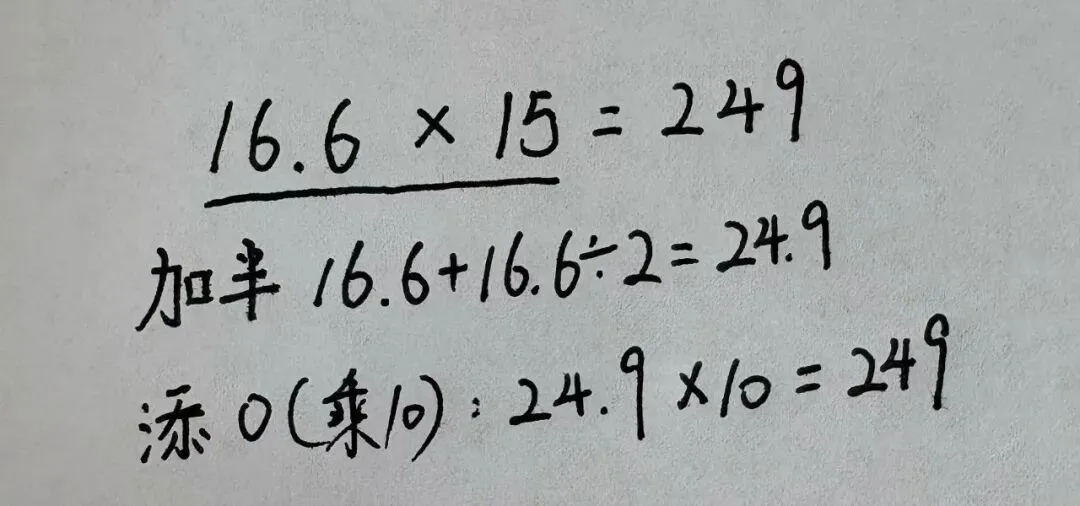 16.6 × 15 = 249
加半 16.6+16.6÷2=24.9
添0(乘10):24.9×10=249